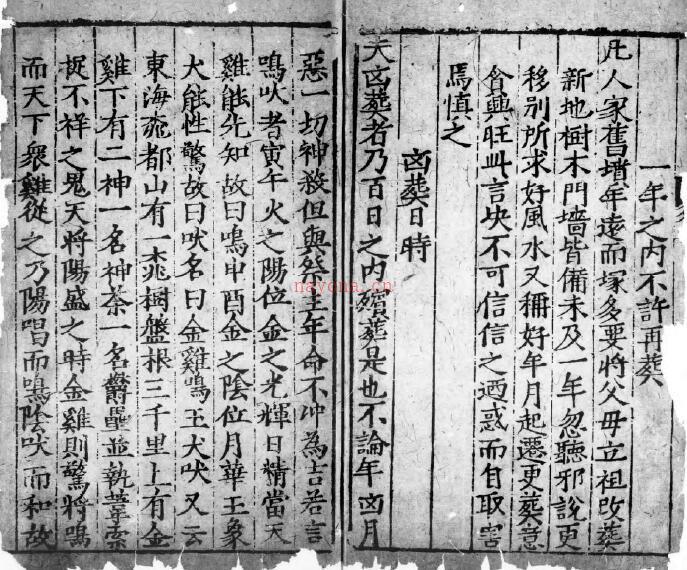 一年之内不許再葬
凡人家舊墳年遠而塚多要將父母立祖改葬
新地樹木門墻皆備未及一年忽聽邪說更
移别所求好風水又稱好年月起遷更葬意
會興旺此言决不可信信之迺惑而自取害
焉慎之
凶葬日時
夫凶葬者乃百日之内殯葬是也不論年凶月
惡一切神殺但與祭主年命不冲為吉若言
鳴吠者寅午火之陽位金之光輝日精當天
雞能先知故曰鳴申酉金之陰位月華玉象
犬能性驚故曰吠名曰金雞鳴玉犬吠又云
東海度都山有一桃樹盤根三千里上有金
雞下有二神一名神荼一名鬱壘並執葦索
捉不祥之鬼天將陽盛之時金雞則驚將鳴
而天下衆雞從之乃陽唱而鳴陰吠而和故
nayona.cn